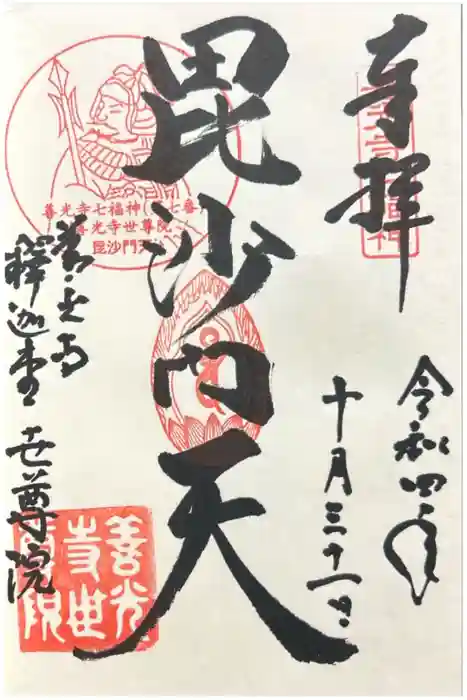 奉拝
令和四年
十月三十一日
毘沙門天
善光寺
釋迦堂 世尊院
善光寺七福神(第七番)
善光寺世尊院
毘沙門天
善光
寺世
尊院